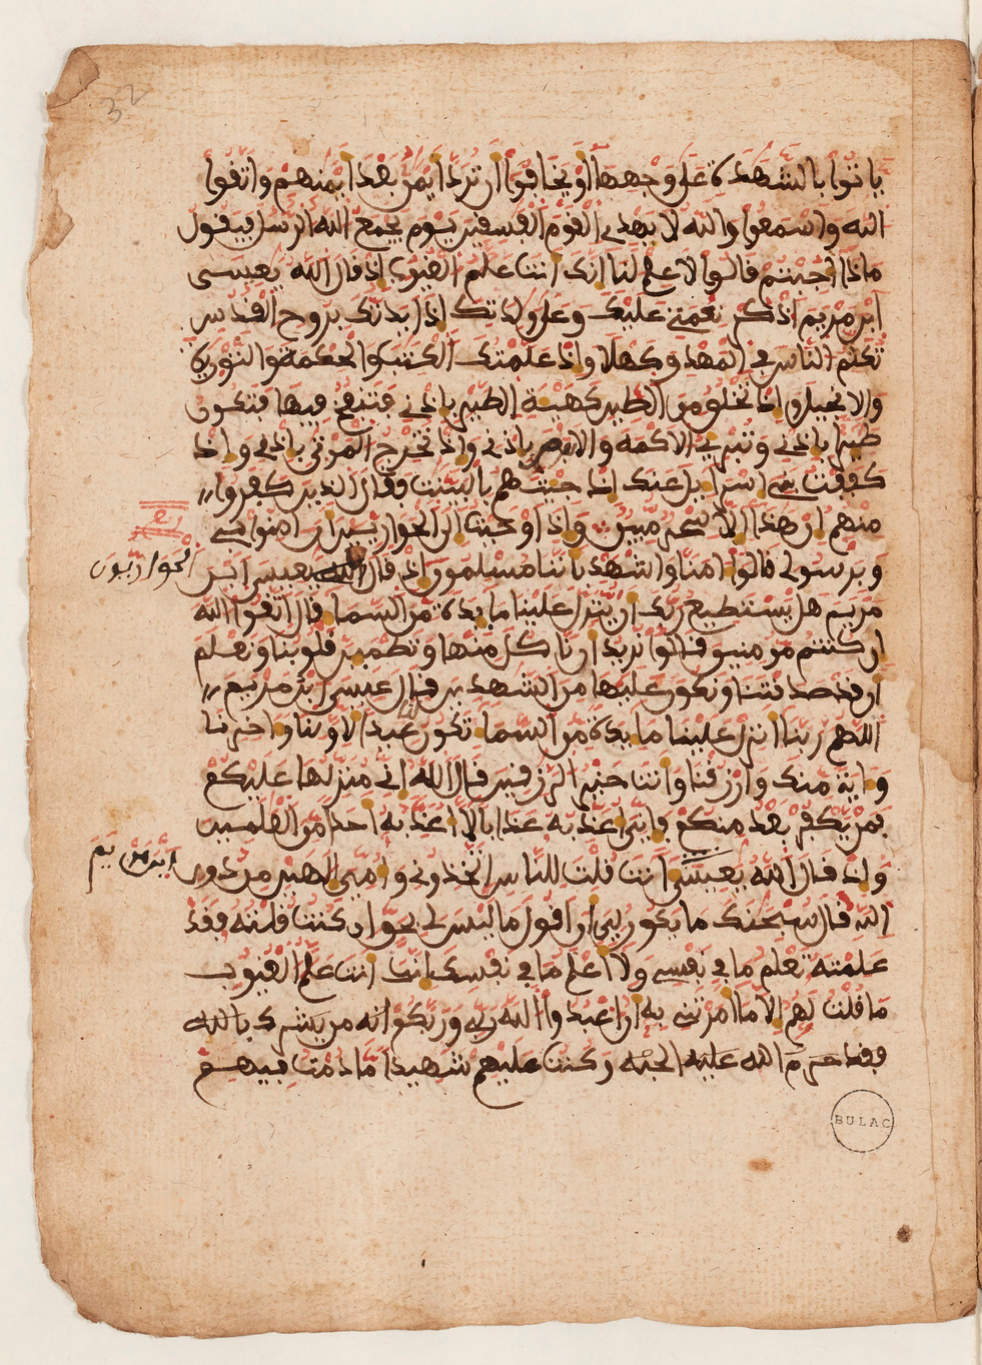 32
ياتوا بالشهدة على وجهها او يخافوا ان ترد ايمن بعد ايمنهم واتقوا
الله واسمعوا والله لا يهدى القوم الفسقين يوم يجمع الله الرسل فيقول
ماذا اجبتم قالوا لا علم لنا انك انت علم الغيوب اذ قال الله يعيسى
ابن مريم اذكر نعمتى عليك وعلى ولدتك اذ ايدتك بروح القدس
تكلم الناس فى المهد وكهلا واذ علمتك الكتب والحكمة والتورية
والانجيل واذ تخلق من الطين كهية الطير باذنى فتنفخ فيها فتكون
طيرا باذنى وتبرى الاكمه والابرص باذنى واذ تخرج الموتى باذنى واذ
كففت بنى اسراىل عنك اذ جيتهم بالبينت فقال الذين كفروا
منهم ان هذا الا سحر مبين واذ اوحيت الى الحوارين ان امنوا بى
وبرسولى قالوا امنا واشهد باننا مسلمون اذ قال الله يعيسى ابن
الحواريون
مريم هل يستطيع ربك ان ينزل علينا مايدة من السما قال اتقوا الله
ان كنتم مومنين قالوا نريد ان ناكل منها وتطمين قلوبنا ونعلم
ان قد صدقتنا ونكون عليها من الشهدين قال عيسى ابن مريم
اللهم ربنا انزل علينا مايدة من السما تكون عيدا لاولنا واخرنا
واية منك وارزقنا وانت خير الرزقين قال الله انى منزلها عليكم
فمن يكفر بعد منكم فانى اعذبه عذابا لا اعذبه احدا من العلمين
واذ قال الله يعيسى انت قلت للناس اتخذونى وامى الهين من دون
ابن مريم
الله قال سبحنك ما يكون لى ان اقول ما ليس لى بحق ان كنت قلته فقد
علمته تعلم ما فى نفسى ولا اعلم ما فى نفسك انك انت علم الغيوب
ما قلت لهم الا ما امرتنى به ان اعبدوا الله ربى وربكم انه من يشرك بالله
فقد حرم الله عليه الجنة وكنت عليهم شهيدا ما دمت فيهم
BULAC